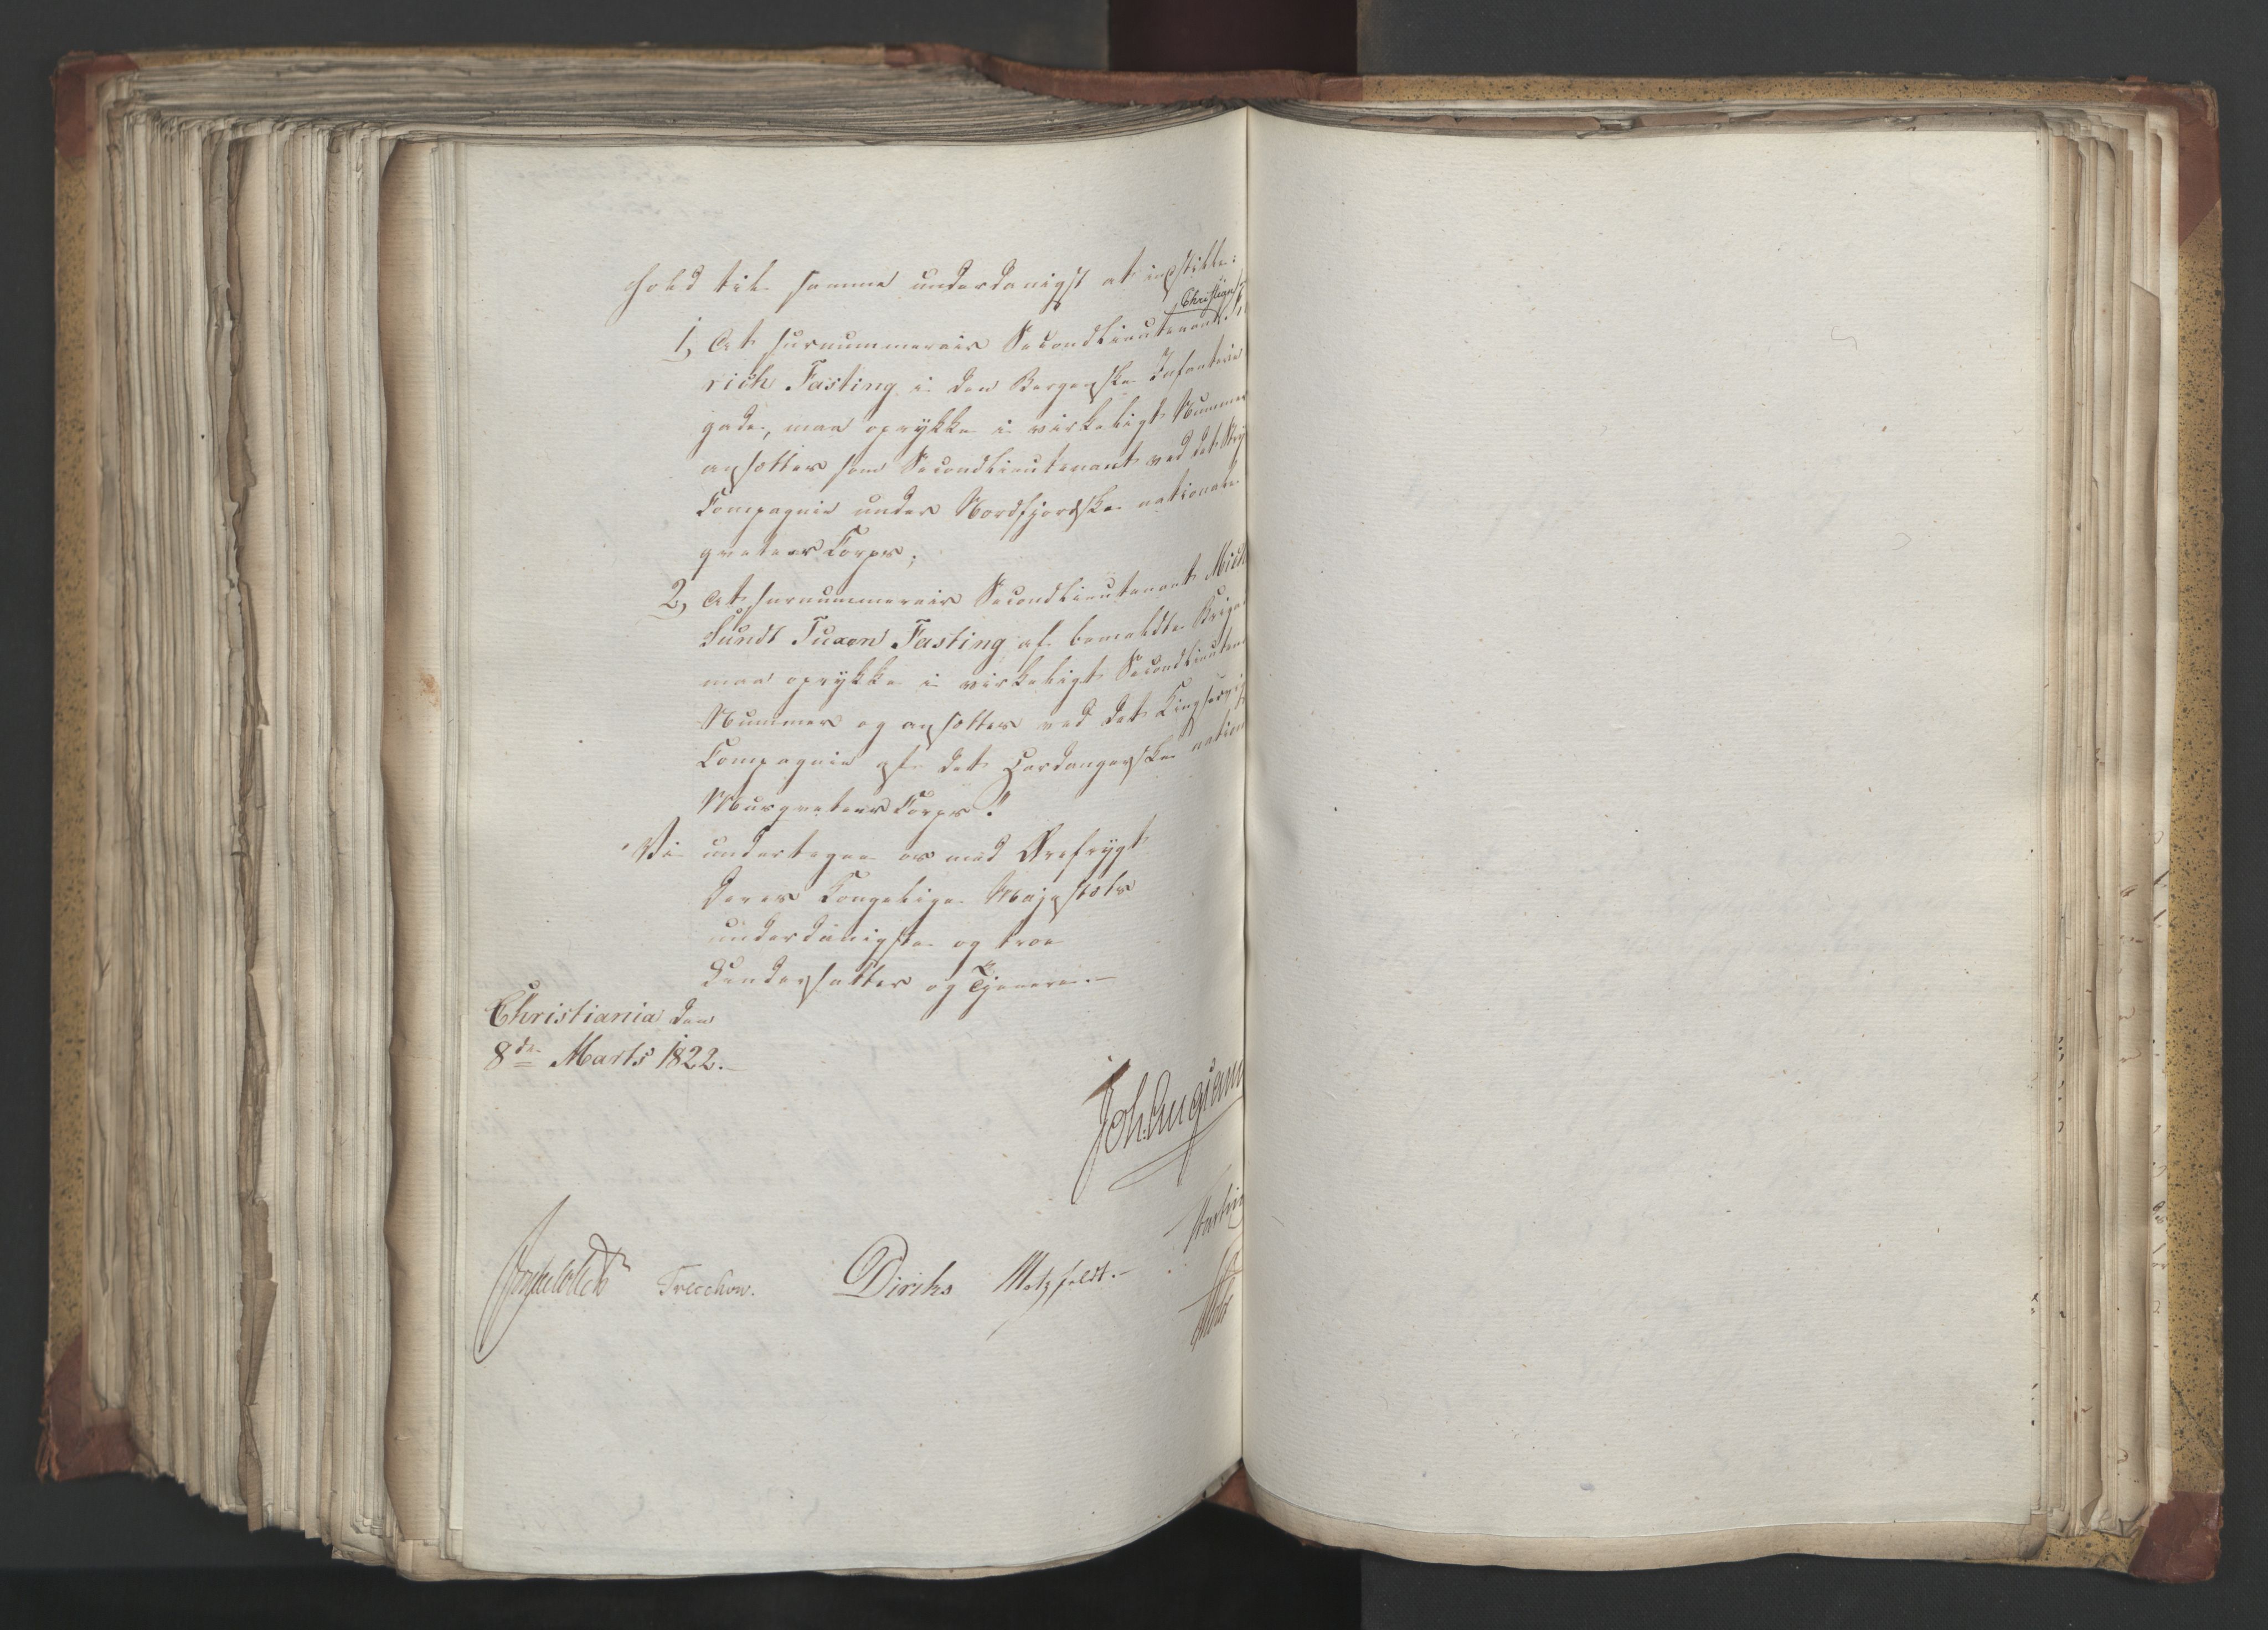 hold til samme underdanigst at indstille:
Christian
1, At surnummerair Secondlieutenant
rich Fasting i den Bergenske Infanterie
gade, maa oprykke i virkeligt Nummer
ansættes som Secondlieutenant ved det
Compagnie under Nordfjordske nationale
queteer Corps;
2, At surnummerair Secondlieutenant Mich
Sundt Tuxen Fasting af bemeldte Briga
maa oprykke i virkeligt Secondlieuten
Nummer og ansættes ved det Kinservi
Compagnie af det Hardangerske nation
Musqueteer Corps."
Vi undertegne os med Ærefrygt
Deres Kongelige Majestæts
underdanigste og troe
Undersatter og Tjenere.—
Christiania den
8de Marts 1822.—
Joh. Aug Sand
Treschow. Diriks Motzfeldt.—